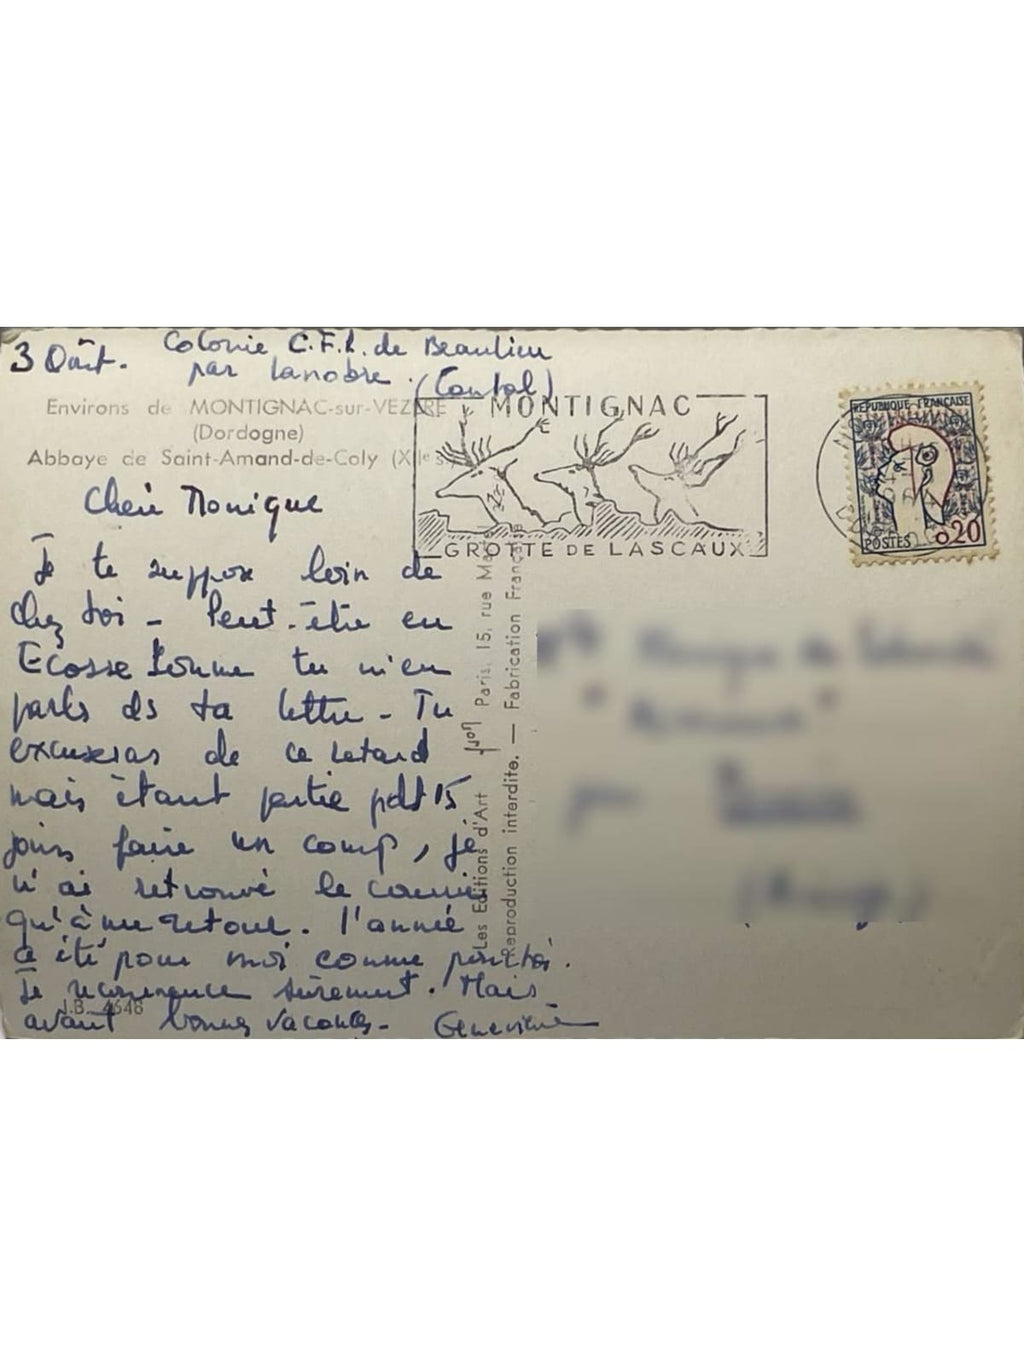 3 Oût.
Colonie C.F.L. de Beaulieu
par Lanobre. (Cantal)
Environs de MONTIGNAC-sur-VEZERE
(Dordogne)
Abbaye de Saint-Amand-de-Coly (XIIe s.)
MONTIGNAC
GROTTE DE LASCAUX
REPUBLIQUE FRANCAISE
POSTES 0,20
Chère Monique
Je te suppose loin de
chez toi - Peut-être en
Ecosse comme tu m'en
parles ds ta lettre - Tu
excuseras de ce retard
mais étant partie pdt 15
jours faire un camp, je
n'ai retrouvé le courrier
qu'à mon retour. L'année
a été pour moi comme pour toi.
Je recommence sûrement. Mais
avant bonnes vacances - Geneviève
J.B. 4648
Les Editions d'Art Paris, 15, rue
Reproduction interdite. — Fabrication Française